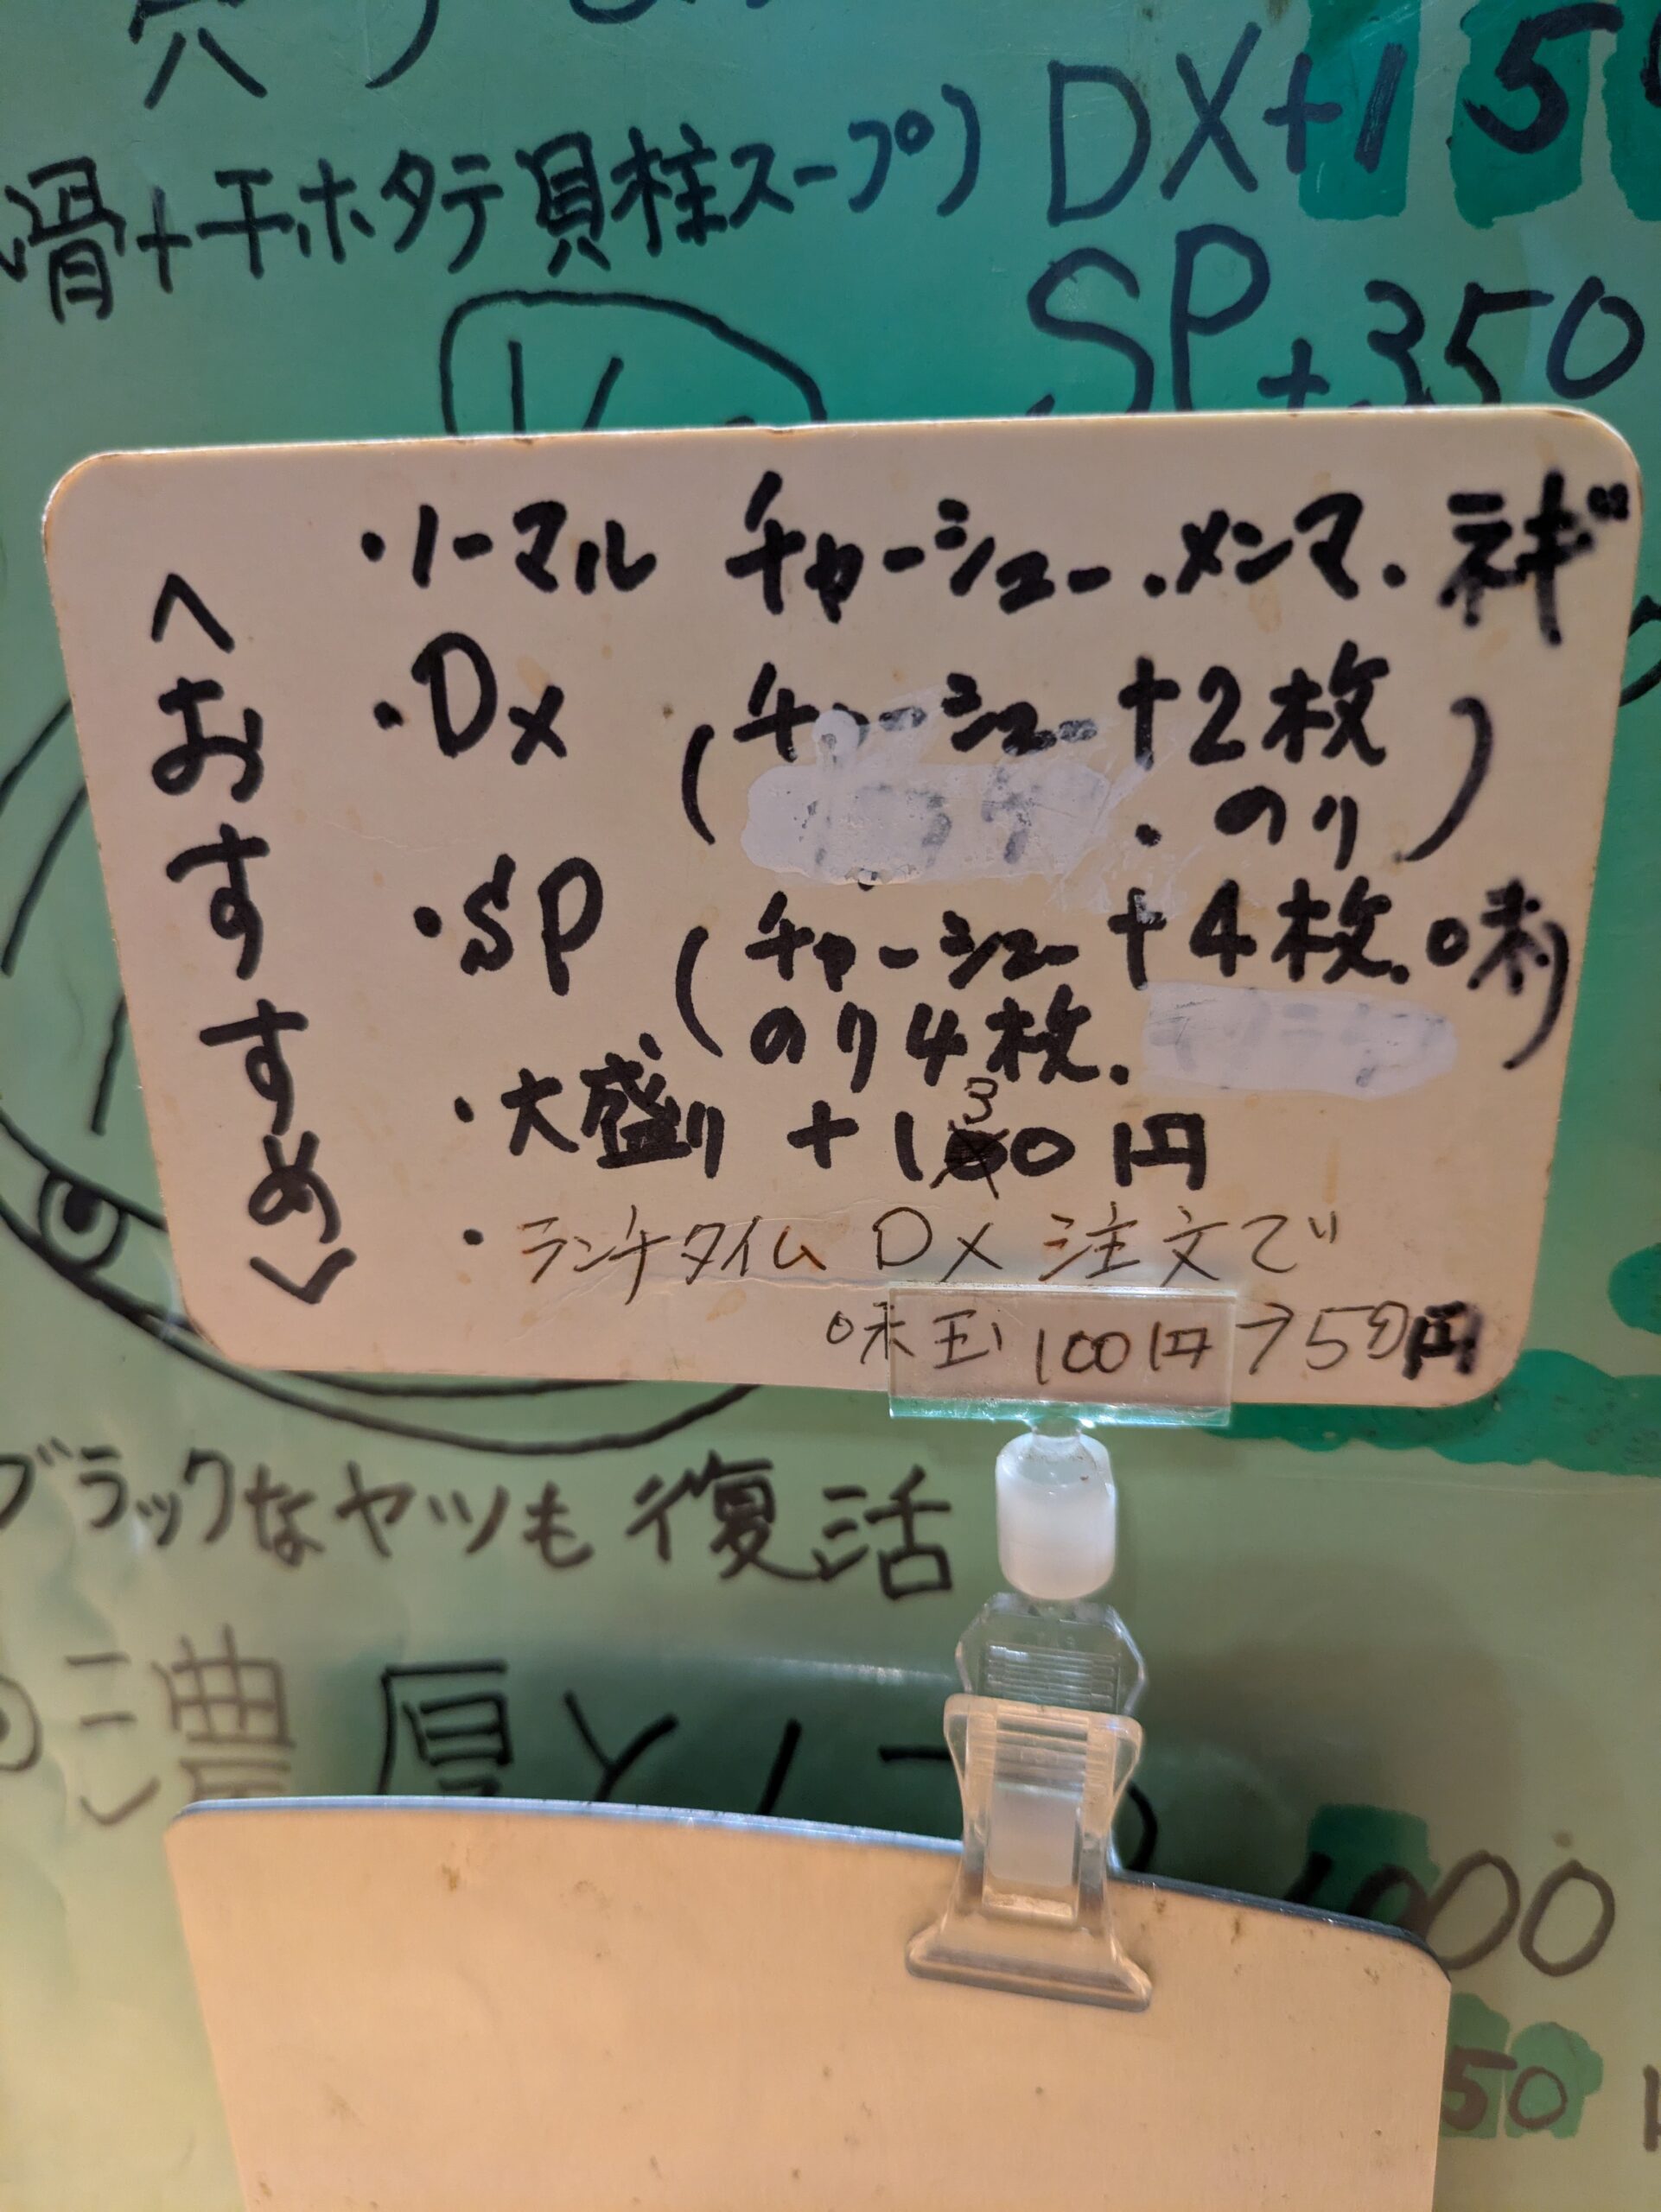 骨+干ホタテ貝柱スープ)
DX+15
SP+350
<おすすめ>
・ノーマル チャーシュー.メンマ.ネギ
・Dx (チャーシュー+2枚
.のり)
・SP (チャーシュー+4枚.味
のり4枚.)
・大盛り +130円
・ランチタイム DX 注文で
味玉 100円→50円
ブラックなヤツも復活
濃厚
000
50